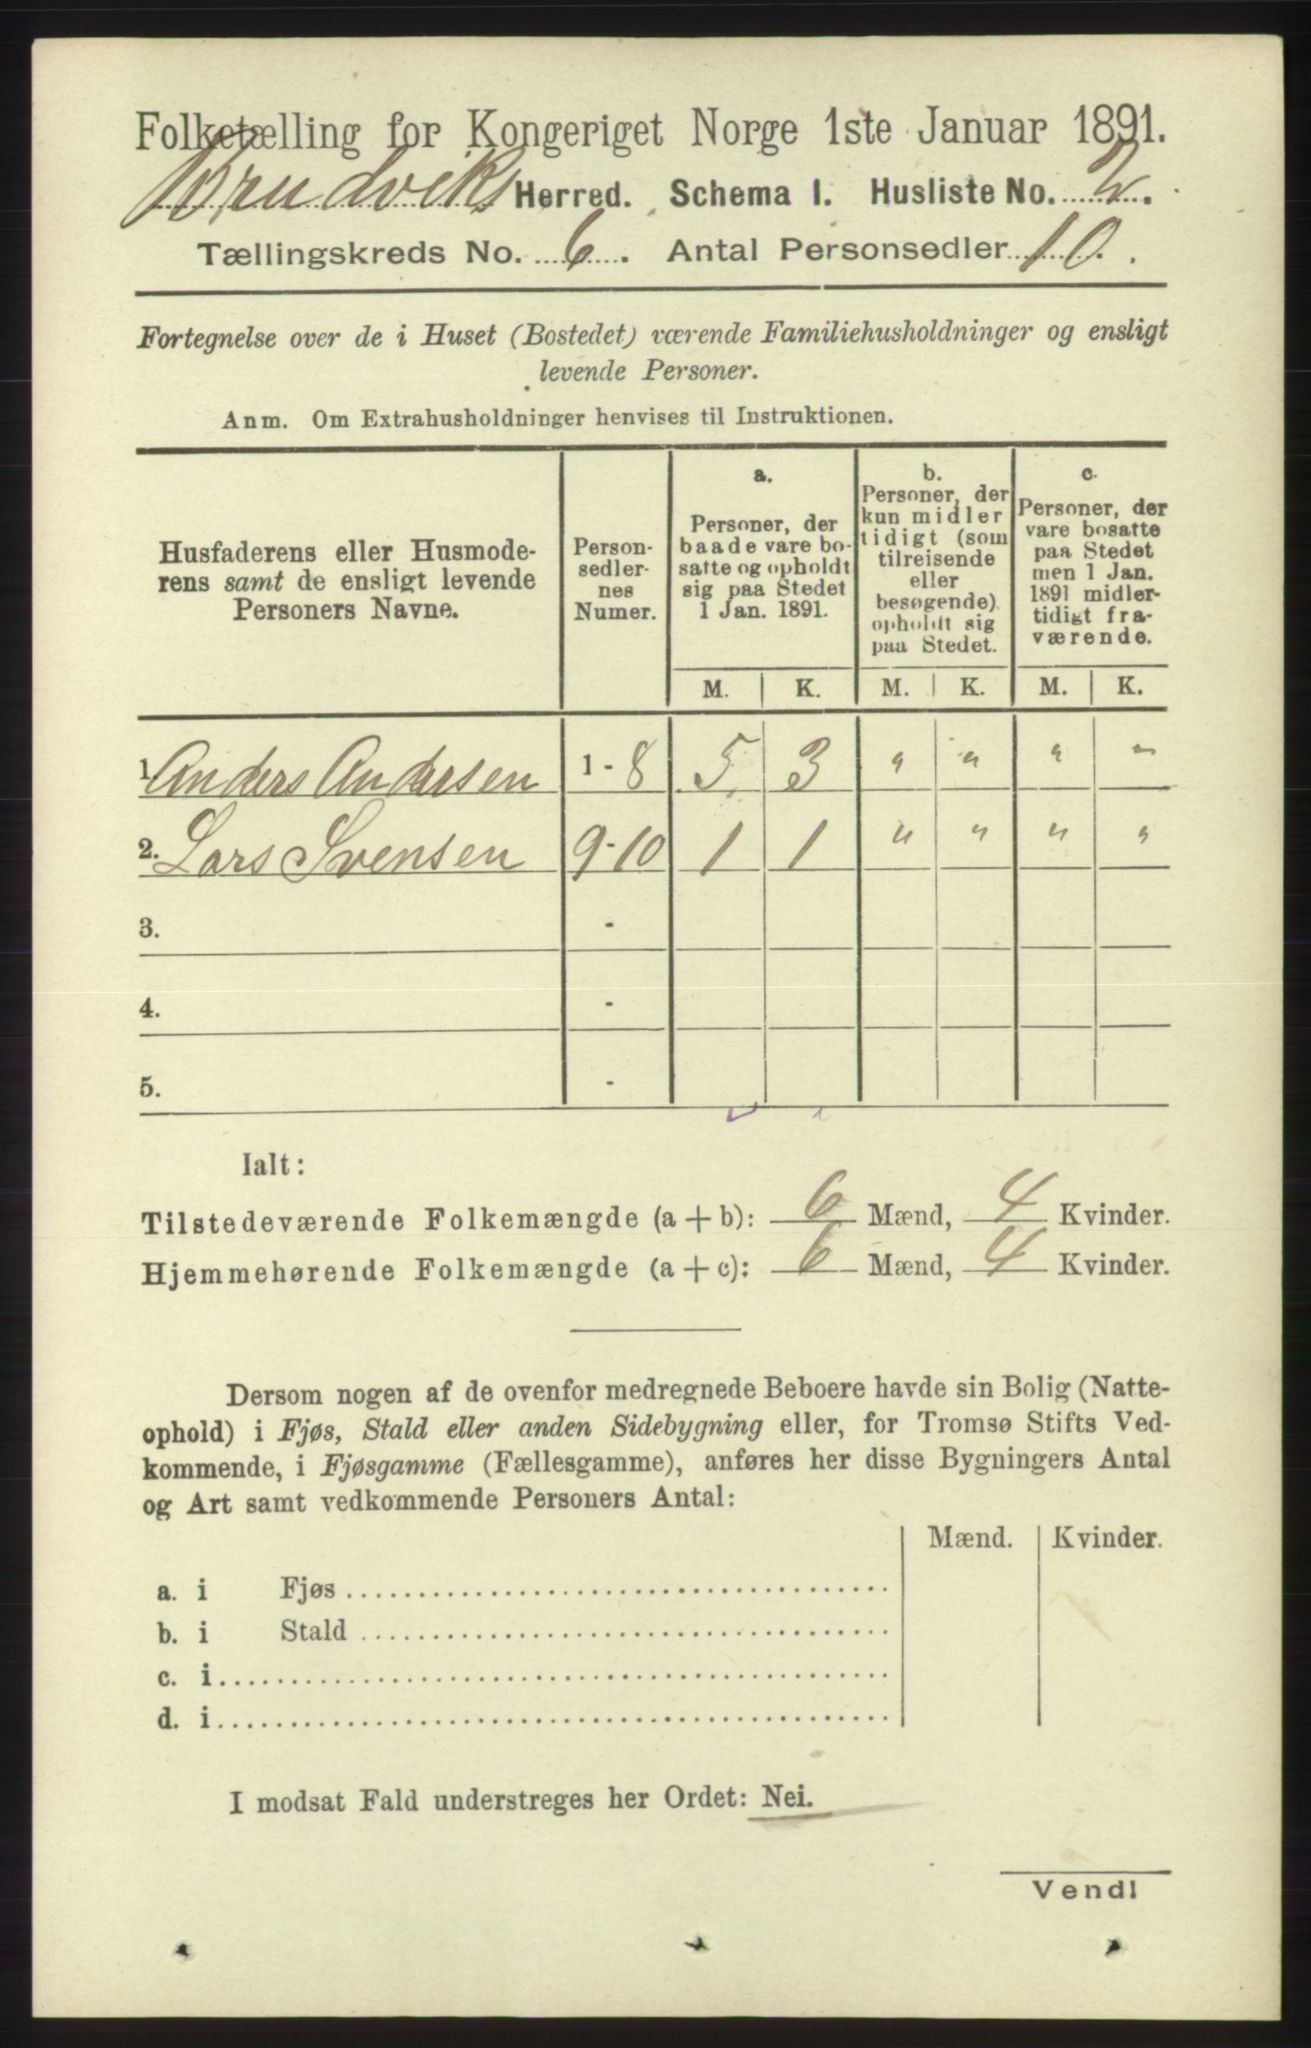 Folketælling for Kongeriget Norge 1ste Januar 1891.
Brudviks Herred. Schema I. Husliste No. 2.
Tællingskreds No. 6. Antal Personsedler 10.
Fortegnelse over de i Huset (Bostedet) værende Familiehusholdninger og ensligt
levende Personer.
Anm. Om Extrahusholdninger henvises til Instruktionen.
Husfaderens eller Husmode-
rens samt de ensligt levende
Personers Navne.
Person-
sedler-
nes
Numer.
a.
Personer, der
baade vare bo-
satte og opholdt
sig paa Stedet
1 Jan. 1891.
b.
Personer, der
kun midler
tidigt (som
tilreisende
eller
besøgende)
opholdt sig
paa Stedet.
c.
Personer, der
vare bosatte
paa Stedet
men 1 Jan.
1891 midler-
tidigt fra-
værende.
M. K. M. K. M. K.
1. Anders Andersen 1-8 5 3 " " " "
2. Lars Svensen 9-10 1 1 " " " "
3. -
4. -
5. -
Ialt:
Tilstedeværende Folkemængde (a + b): 6 Mænd, 4 Kvinder.
Hjemmehørende Folkemængde (a + c): 6 Mænd, 4 Kvinder.
Dersom nogen af de ovenfor medregnede Beboere havde sin Bolig (Natte-
ophold) i Fjøs, Stald eller anden Sidebygning eller, for Tromsø Stifts Ved-
kommende, i Fjøsgamme (Fællesgamme), anføres her disse Bygningers Antal
og Art samt vedkommende Personers Antal:
Mænd. Kvinder.
a. i Fjøs
b. i Stald
c. i
d. i
I modsat Fald understreges her Ordet: Nei.
Vend!